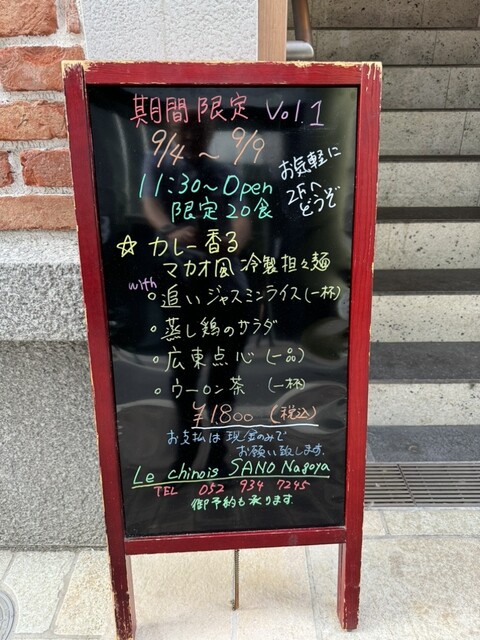 期間限定 Vol.1
9/4 ～ 9/9
お気軽に
2Fへ
どうぞ
11:30～Open
限定20食
☆ カレー香る
マカオ風 冷製担々麺
with
○追いジャスミンライス(一杯)
○蒸し鶏のサラダ
○広東点心(一品)
○ウーロン茶 (一杯)
¥1,800 (税込)
お支払は現金のみで
お願い致します。
Le chinois SANO Nagoya
TEL 052 934 7245
御予約も承ります